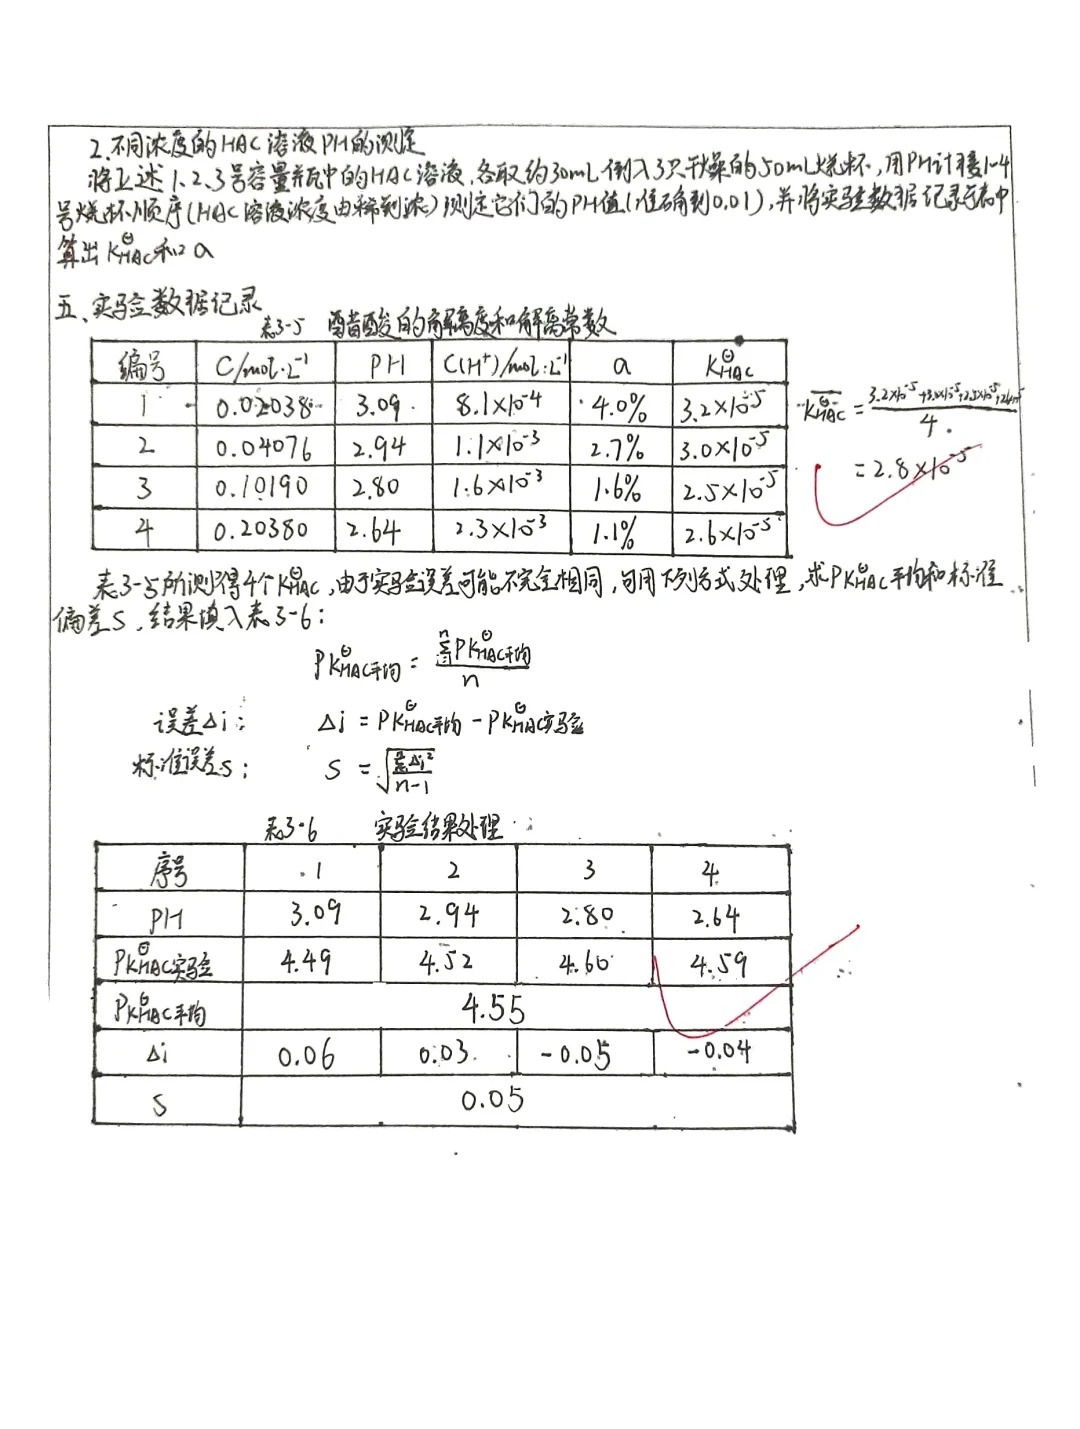 2.不同浓度的HAC溶液PH的测定
将上述1、2、3号容量瓶中的HAC溶液,各取约30mL倒入3只干燥的50mL烧杯,用PH计按1-4
号烧杯顺序(HAC溶液浓度由稀到浓)测定它们的PH值(准确到0.01),并将实验数据记录于表中
算出K^Θ_HAC和a
五、实验数据记录
表3-5 醋酸的解离度和解离常数
编号 C/mol·L⁻¹ PH C(H⁺)/mol·L⁻¹ a K^Θ_HAC
1 0.02038 3.09 8.1×10⁻⁴ 4.0% 3.2×10⁻⁵
2 0.04076 2.94 1.1×10⁻³ 2.7% 3.0×10⁻⁵
3 0.10190 2.80 1.6×10⁻³ 1.6% 2.5×10⁻⁵
4 0.20380 2.64 2.3×10⁻³ 1.1% 2.6×10⁻⁵
K^Θ_HAC = (3.2×10⁻⁵+3.0×10⁻⁵+2.5×10⁻⁵+)/4
=2.8×10⁻⁵
表3-5所测得4个K^Θ_HAC,由于实验误差可能不完全相同,可用下列方式处理,求PK^Θ_HAC平均和标准
偏差S,结果填入表3-6:
PK^Θ_HAC平均 = Σ^n PK^Θ_HAC平均/n
误差Δi: Δi = PK^Θ_HAC平均 - PK^Θ_HAC实验
标准误差S: S = √(Σ^n Δi²/(n-1))
表3-6 实验结果处理
序号 1 2 3 4
PH 3.09 2.94 2.80 2.64
PK^Θ_HAC实验 4.49 4.52 4.60 4.59
PK^Θ_HAC平均 4.55
Δi 0.06 0.03 -0.05 -0.04
S 0.05